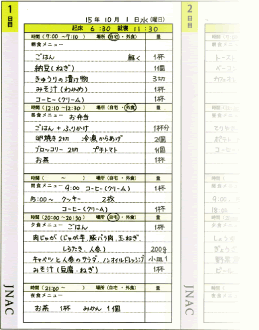 1日目
15年 10月 1日水(曜日)
起床 6:30 就寝 11:30
時間(7:00 ~7:10) 場所(自宅・外食) 量
朝食メニュー
ごはん 軽く 1杯
納豆(ねぎ) 1個
きゅうりの漬け物 3切
みそ汁(わかめ) 1杯
コーヒー(クリーム) 1杯
時間(12:10~12:30) 場所(自宅・外食) 量
昼食メニュー お弁当
ごはん+ふりかけ 1杯分
卵焼き2切 冷凍からあげ 2個
ブロッコリー2切 プチトマト
お茶 1杯
時間( ~ ) 場所(自宅・外食) 量
間食メニュー 9:00 コーヒー(クリーム) 1杯
15:00~ クッキー 2枚
コーヒー(クリーム) 1杯
時間(20:00~20:30) 場所(自宅・外食) 量
夕食メニュー ごはん 1杯
肉じゃが(じゃが芋、豚バラ肉、玉ねぎ
しらたき、人参) 200g
キャベツと人参のサラダ、ノンオイルドレッシング 小皿1
みそ汁(豆腐・ねぎ) 1杯
時間(21:30~ ) 場所(自宅・外食) 量
お茶 1杯 みかん 1個
JNAC
2日目
JNAC